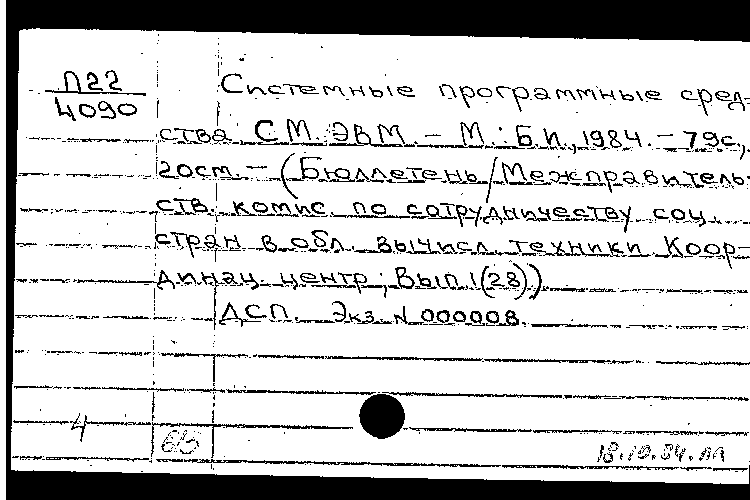 П22
4090
Системные программные сред-
ства СМ ЭВМ. – М.: Б.И., 1984. – 79с,
20см. – (Бюллетень/Межправитель-
ств. комис. по сотрудничеству соц.
стран в обл. вычисл. техники. Коор-
динац. центр; Вып.1(28)).
ДСП. Экз. N 000008.
4
б/з
18.10.84.